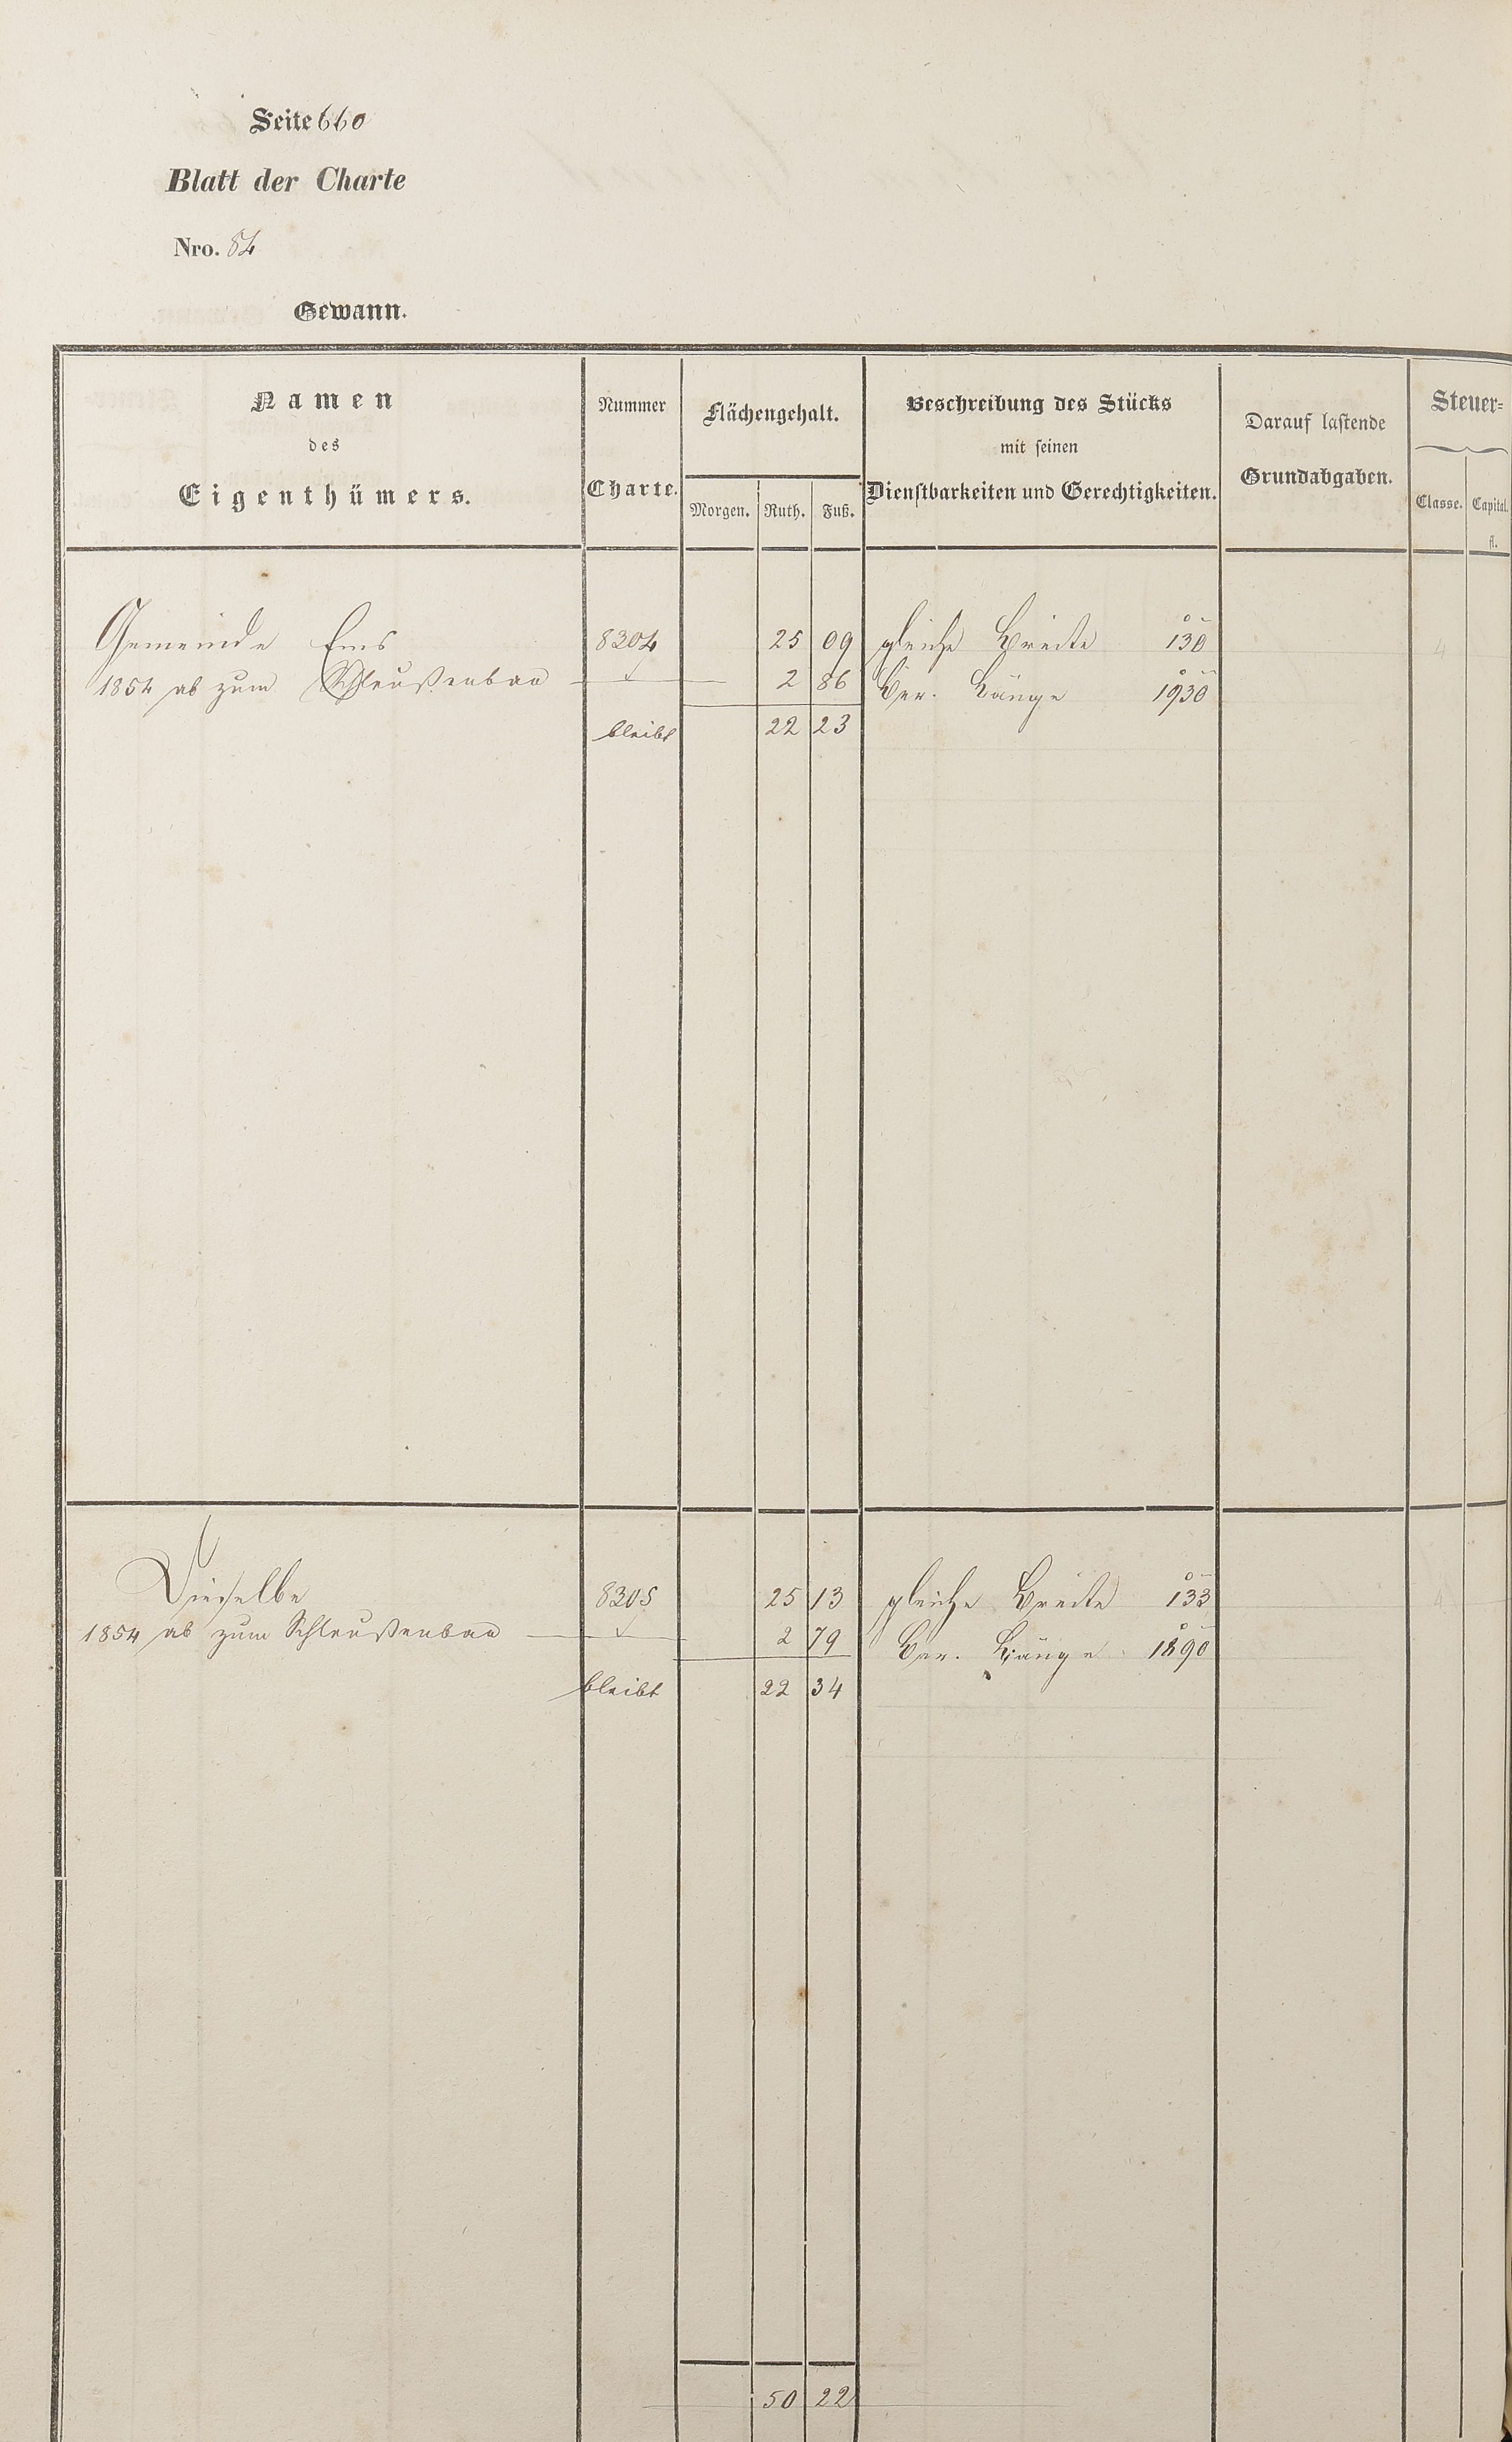 Seite 660
Blatt der Charte
Nro. 84
Gewann.
Namen
des
Eigenthümers.
Nummer
Charte.
Flächengehalt.
Morgen. Ruth. Fuß.
Beschreibung des Stücks
mit seinen
Dienstbarkeiten und Gerechtigkeiten.
Darauf lastende
Grundabgaben.
Steuer-
Classe. Capital.
fl.
Gemeinde Ems 8304 25 09 gleiche Breite 130
1854 ab zum Schleußenbau 2 86 Ber. Länge 1930
bleibt 22 23
4
Dieselbe 8305 25 13 gleiche Breite 133
1854 ab zum Schleußenbau 2 79 Ber. Länge 1890
bleibt 22 34
4
50 22